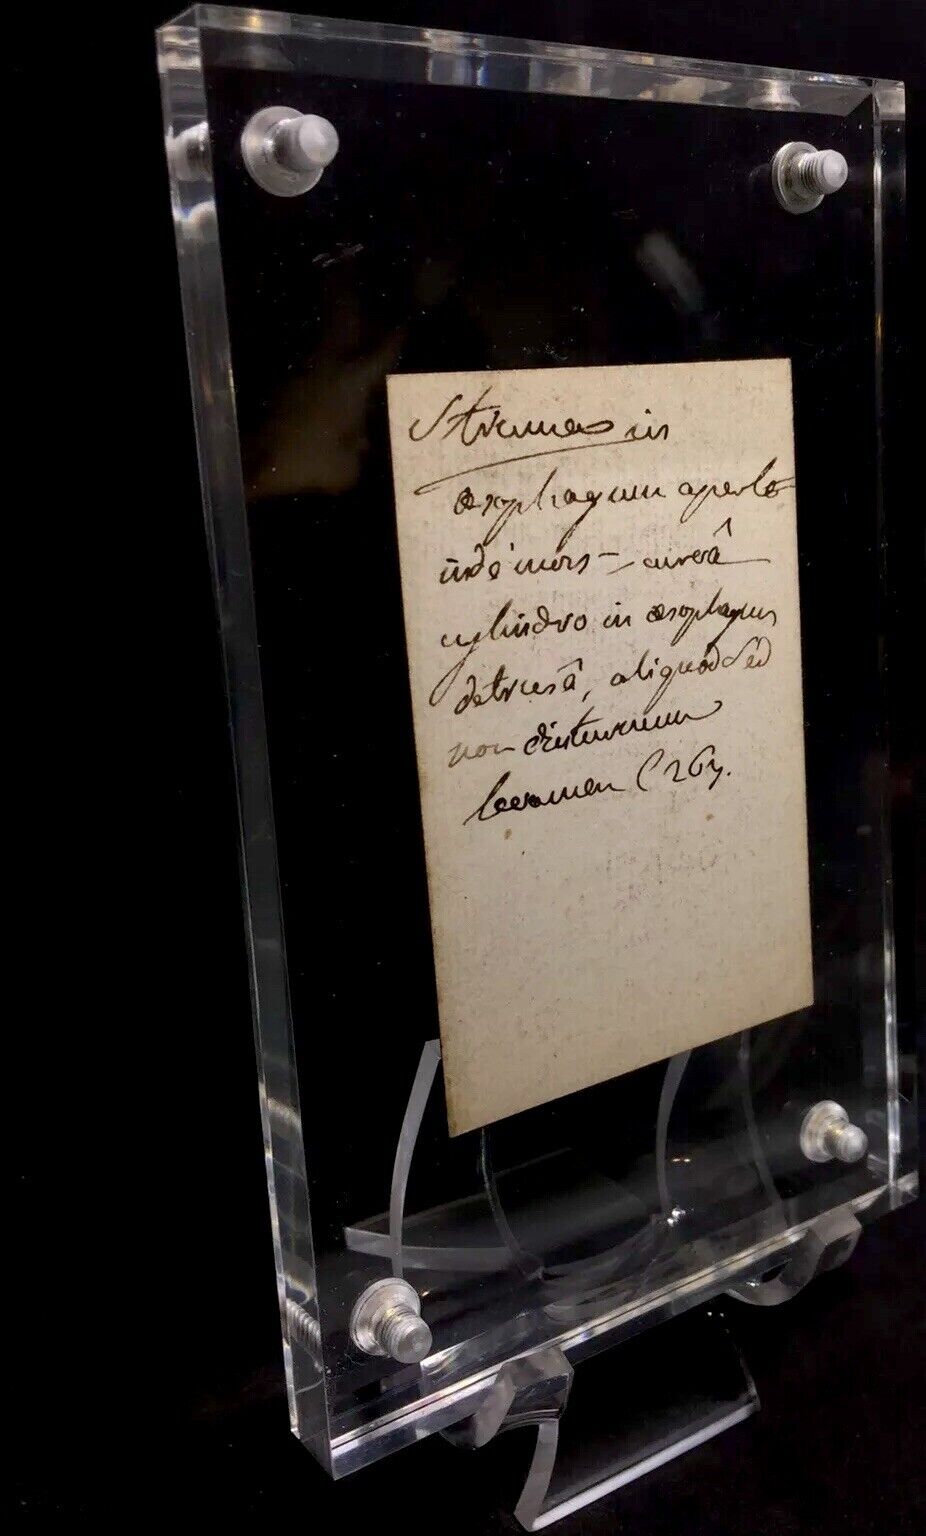 Strumas in
œsophagum aperta
inde mors –
cylindro in œsophagum
detrusâ, aliquod sed
non diuturnum
levamen (267.